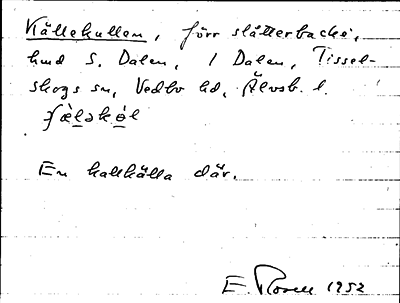 Källekullen, förr slåtterbacke,
hmd S. Dalen, 1 Dalen, Tissel-
skogs sn, Vedbo hd, Älvsb. l.
En kallkälla där.
E. Rosell 1952